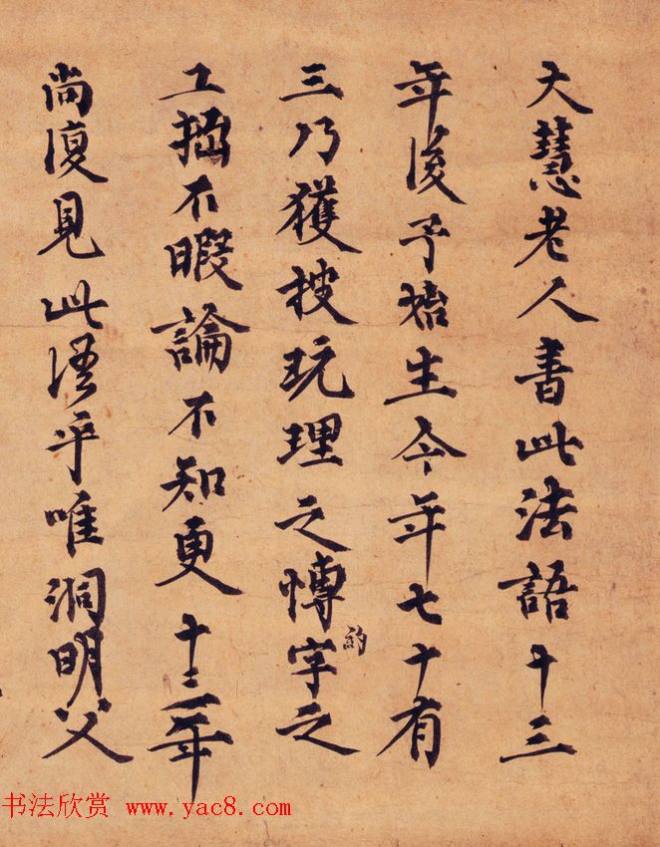 大慧老人書此法語十三
年後予始生今年七十有
三乃獲披玩理之博約字之
工拙不暇論不知更十三年
尚復見此乎唯洞明父
书法欣赏 www.yac8.com